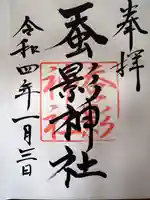 奉拝
蚕影神社
令和四年一月三日